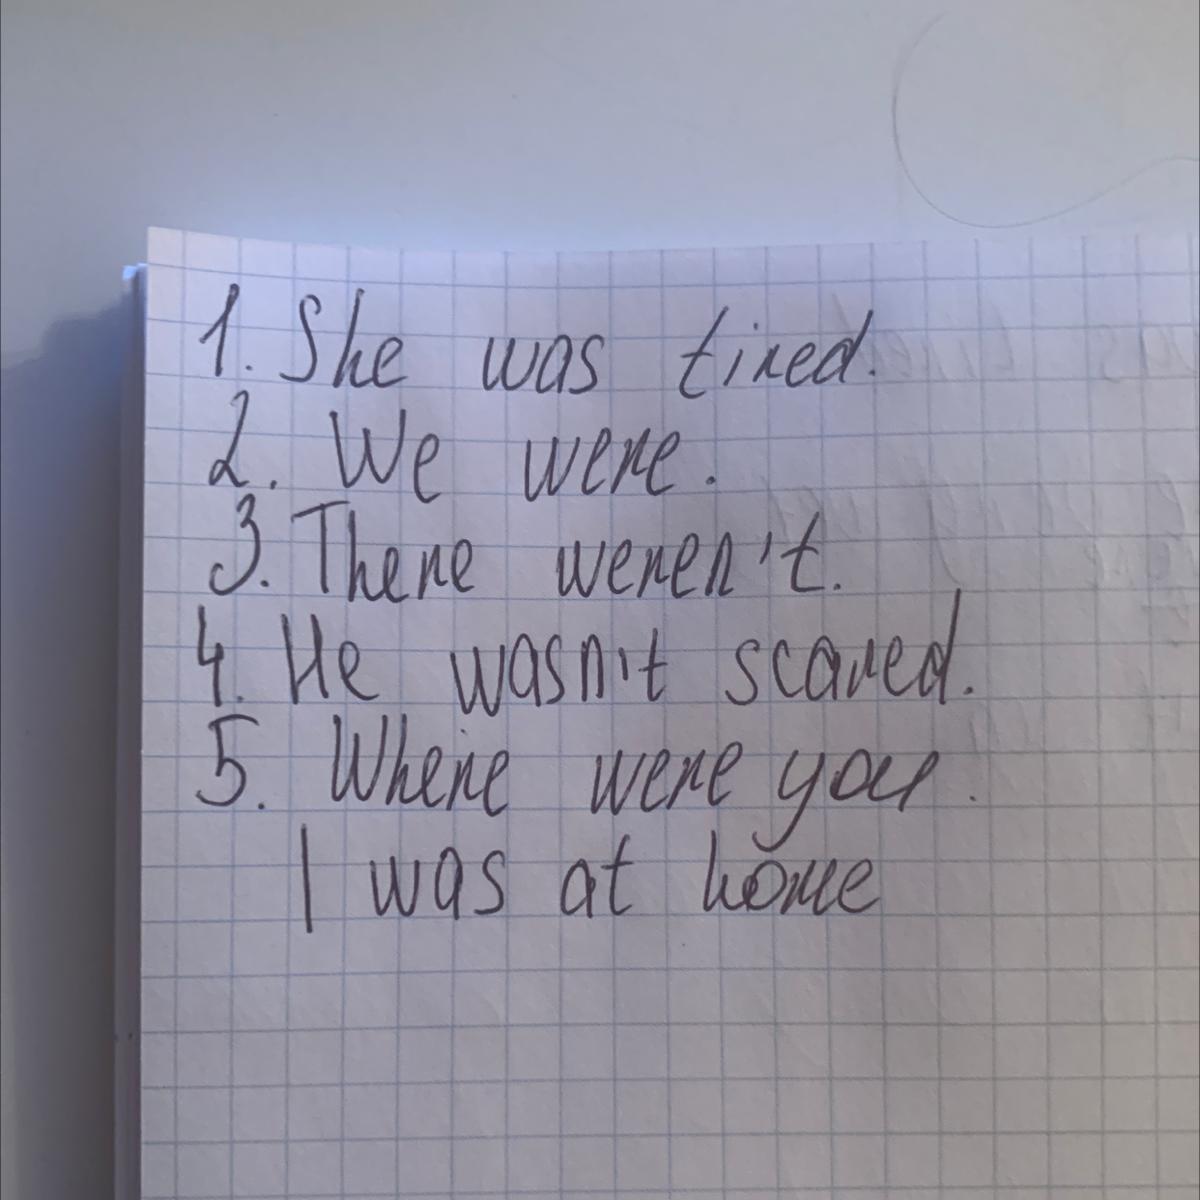 1. She was tired.
2. We were.
3. There weren't.
4. He wasn't scared.
5. Where were you.
I was at home